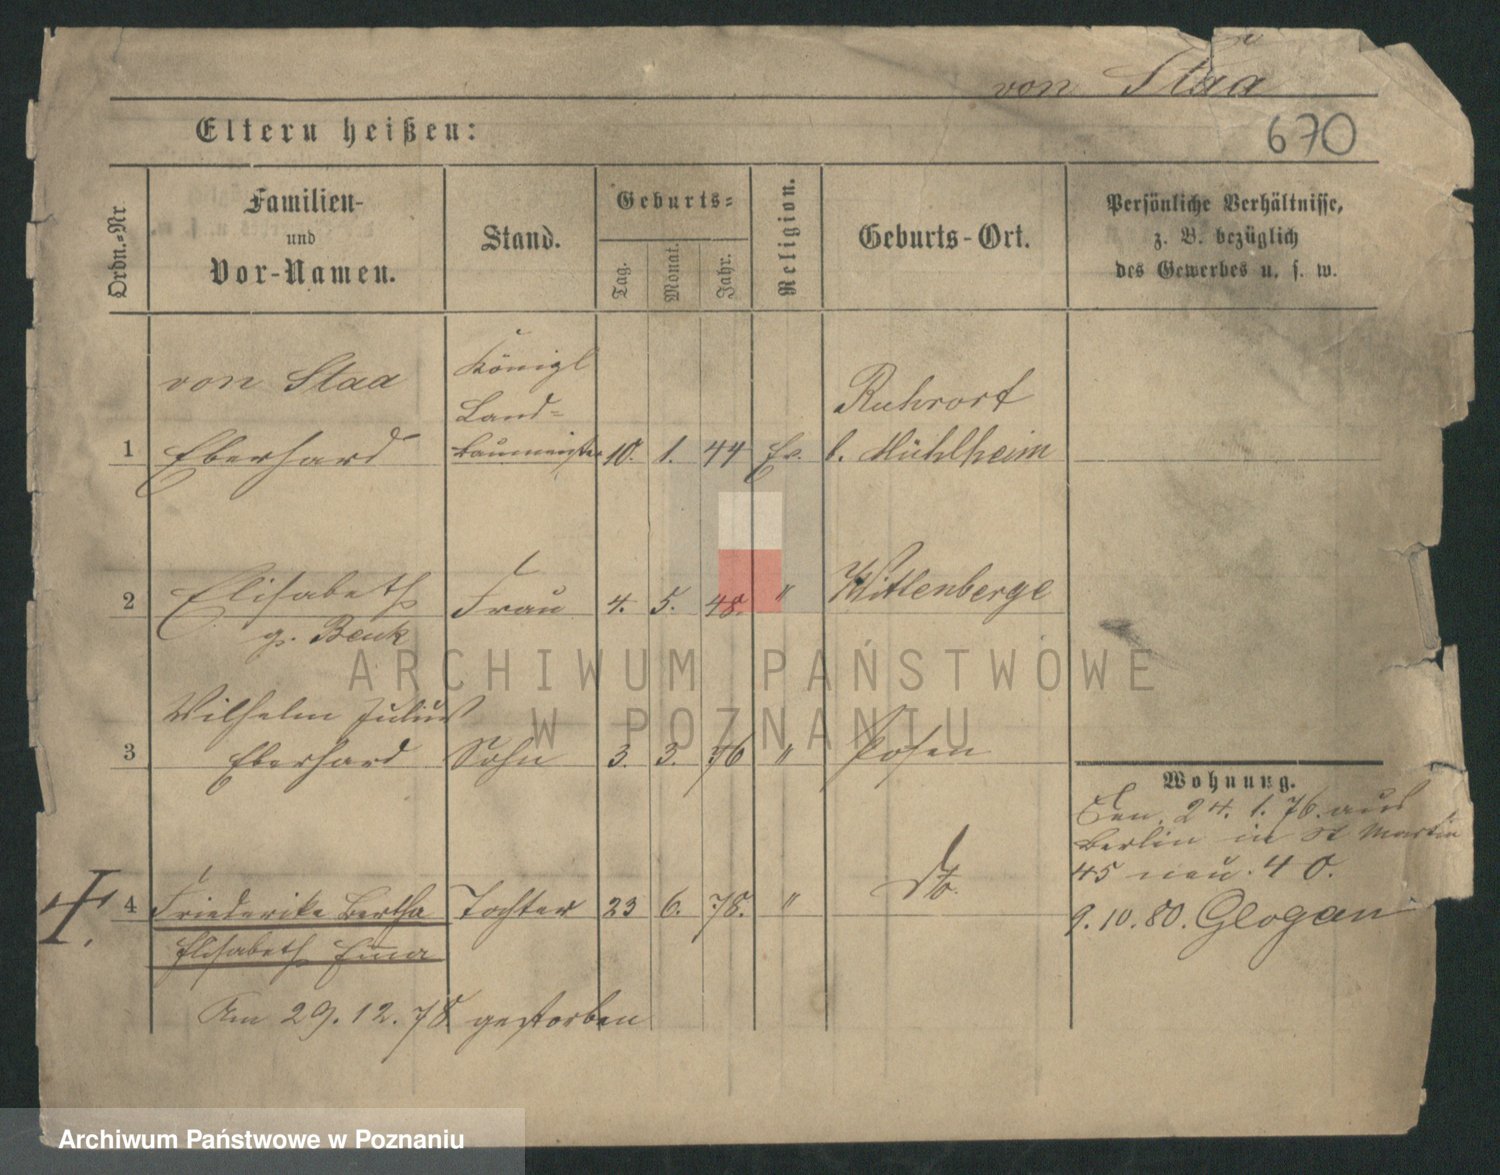 von Staa
Eltern heißen:
670
Ordn.=Nr
Familien-
und
Vor-Namen.
Stand.
Geburts=
Tag.
Monat.
Jahr.
Religion.
Geburts-Ort.
Persönliche Verhältnisse,
z. B. bezüglich
des Gewerbes u. s. w.
von Staa
Königl
Land=
1 Eberhard baumeister 10. 1. 44 Ev.
Ruhrort
b. Mühlheim
2 Elisabeth Frau 4. 5. 48. " Wittenberge
g. Benk
Wilhelm Julius
3 Eberhard Sohn 3. 3. 76 " Posen
Wohnung.
Den 24. 1. 76. aus
Berlin in St Martin
45 neu. 40.
9. 10. 80. Glogau
4 Friederike Bertha Tochter 23 6. 78. " dto.
Elisabeth Emma
Am 29. 12. 78 gestorben
ARCHIWUM PAŃSTWOWE
W POZNANIU
Archiwum Państwowe w Poznaniu